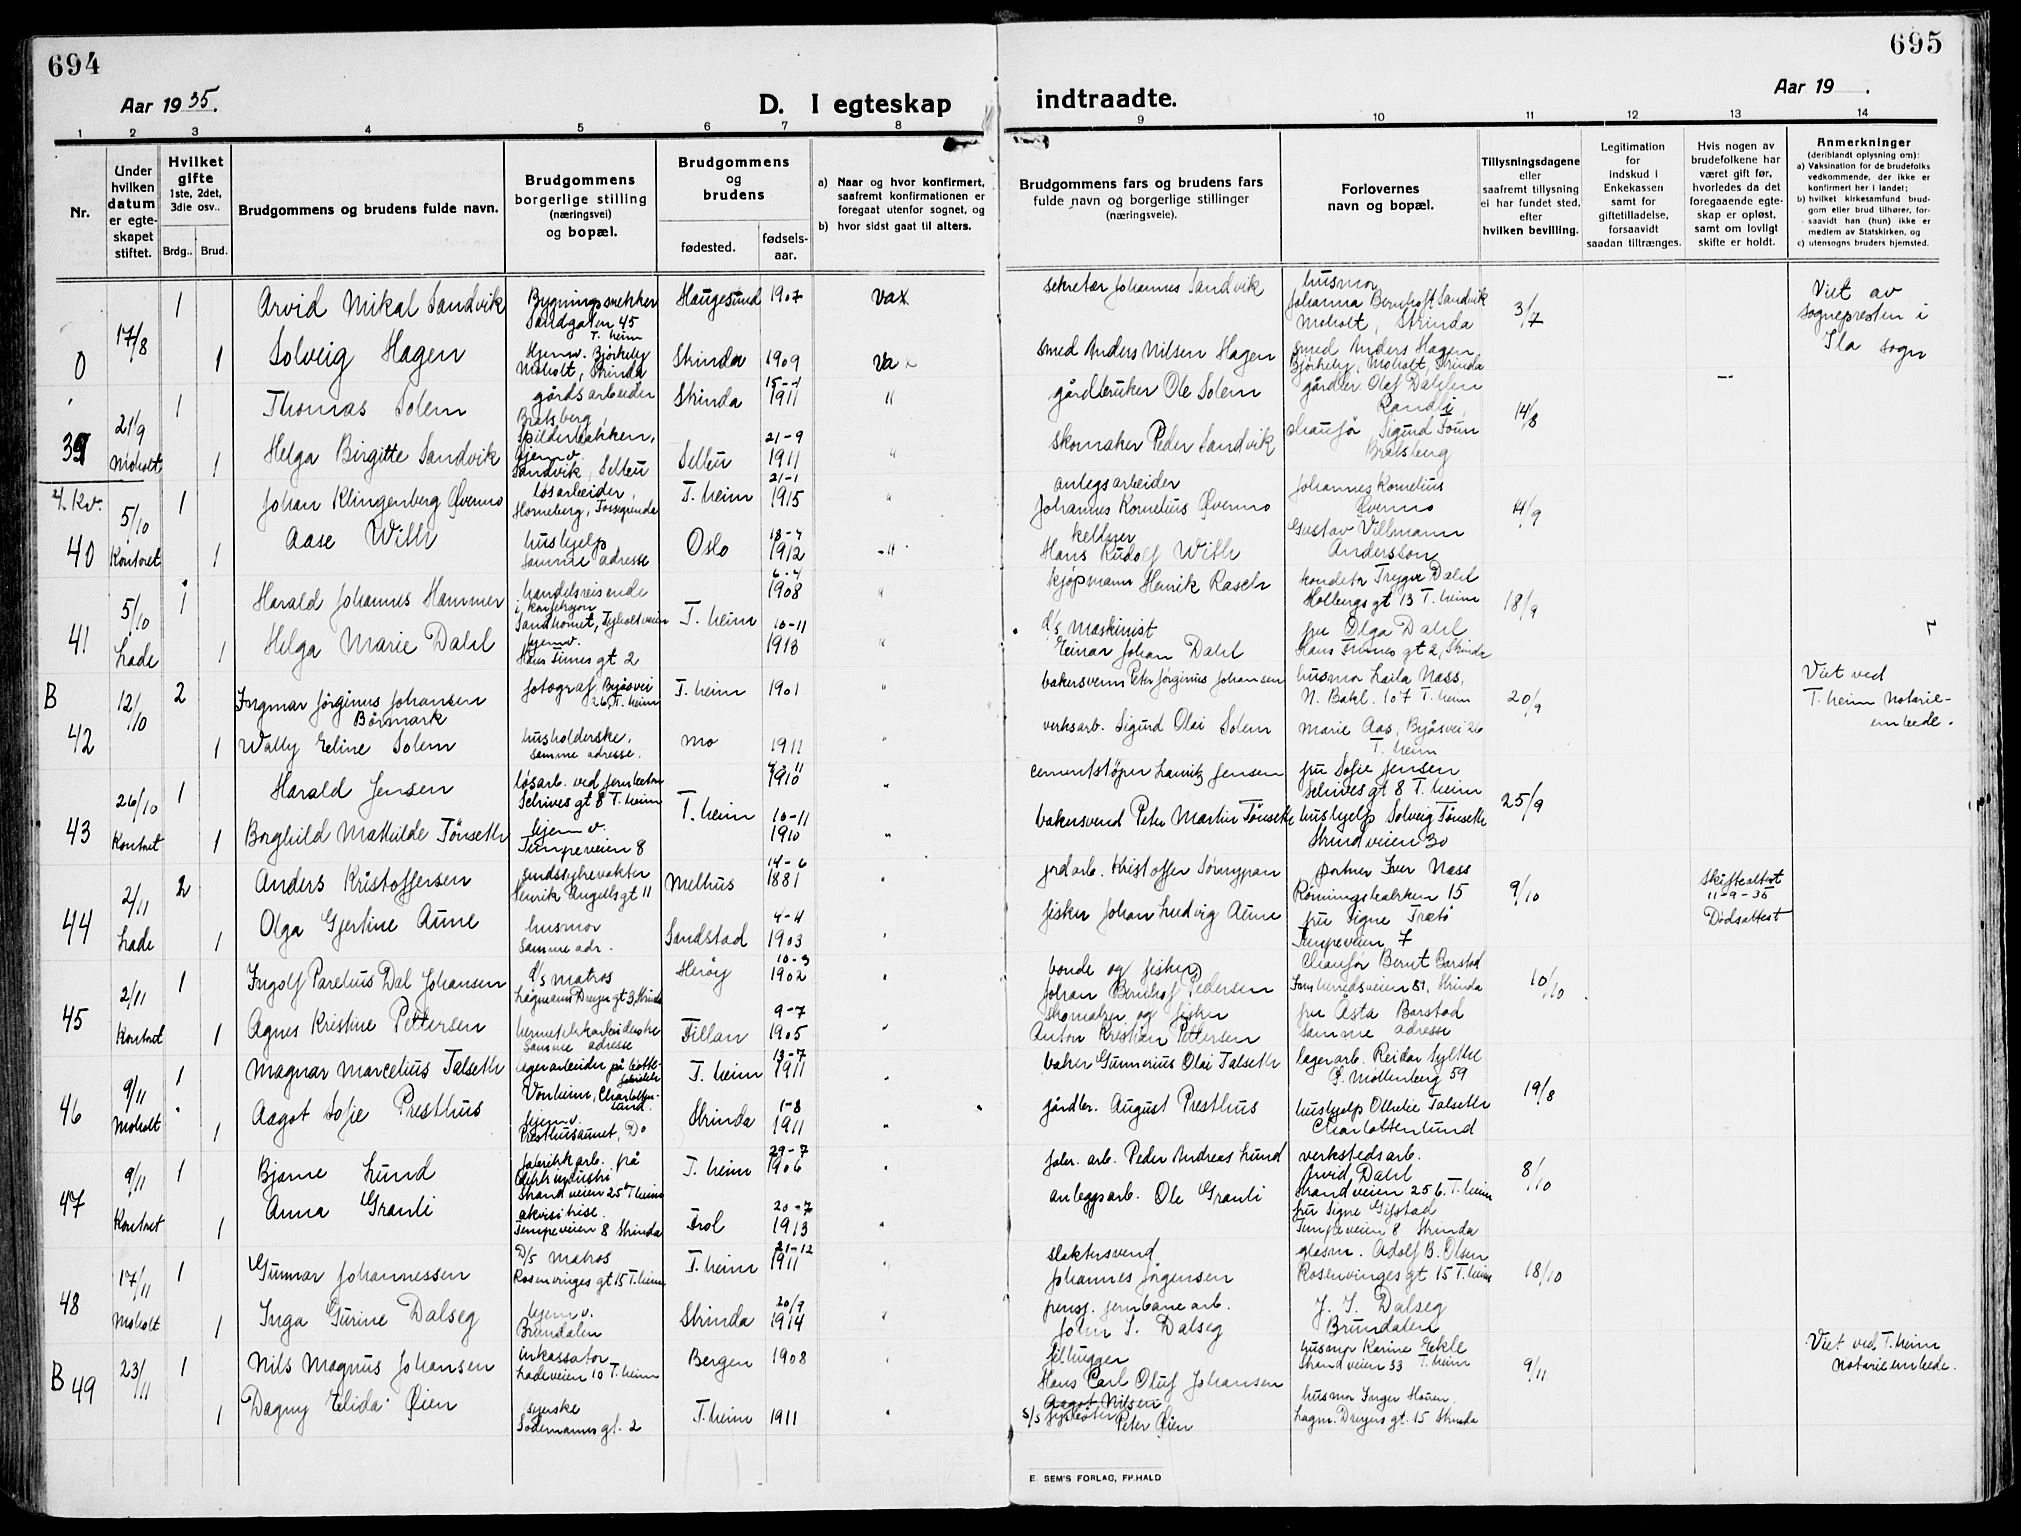 694
695
Aar 1935.
Aar 19 .
D. I egteskap indtraadte.
1 2 3 4 5 6 7 8 9 10 11 12 13 14
Nr.
Under hvilken datum er egteskapet stiftet.
Hvilket gifte 1ste, 2det, 3die osv..
Brdg.. Brud.
Brudgommens og brudens fulde navn.
Brudgommens borgerlige stilling (næringsvei) og bopæl.
Brudgommens og brudens
fødested. fødselsaar.
a) Naar og hvor konfirmert, saafremt konfirmationen er foregaat utenfor sognet, og
b) hvor sidst gaat til alters.
Brudgommens fars og brudens fars fulde navn og borgerlige stillinger (næringsveie).
Forlovernes navn og bopæl.
Tillysningsdagene eller saafremt tillysning ei har fundet sted, efter hvilken bevilling.
Legitimation for indskud i Enkekassen samt for giftetilladelse, forsaavidt saadan tiltrænges.
Hvis nogen av brudefolkene har været gift før, hvorledes da det foregaaende egteskap er opløst, samt om lovligt skifte er holdt.
Anmerkninger (deriblandt oplysning om):
a) Vaksination for de brudefolks vedkommende, der ikke er konfirmert her i landet;
b) hvilket kirkesamfund brudgom eller brud tilhører, forsaavidt han (hun) ikke er medlem av Statskirken, og
c) utensogns bruders hjemsted.
0 17/8 1 Arvid Mikal Sandvik Bygningssnekker Sandgaten 45 T.heim Haugesund 1907 vax sekretær Johannes Sandvik husmor Johanna Bernhoft Sandvik Moholt, Strinda 3/7 Viet av sognepresten i Ila sogn
1 Solveig Hagen Hjemv. Bjørkeby Moholt, Strinda Strinda 1909 Va smed Anders Nilsen Hagen smed Anders Hagen Bjørkeby, Moholt, Strinda
39 21/9 Moholt 1 Thomas Solem gårdsarbeider Bratsberg Strinda 15-4 1911 " gårdbruker Ole Solem gårdbr Olaf Dahlen Ranli 14/8
1 Helga Birgitte Sandvik hjemv. Sandvik, Selbu Selbu 21-9 1911 " skomaker Peder Sandvik chaufør Sigurd Foun Bratsberg
4. Kv.
40 5/10 Kontoret 1 Johan Klingenberg Øvermo løsarbeider, Horneberg, Fossegrenda T.heim 21-1 1915 " anlegsarbeider Johannes Kornelius Øvermo Johannes Kornelius Øvermo 14/9
1 Aase With hushjelp samme adresse Oslo 18-7 1912 -"- kellner Hans Rudolf With Gustav Villmann Andersson
41 5/10 Lade 1 Harald Johannes Hammer handelsreisende i konfeksjon T.heim 6-4 1908 " kjøpmann Henrik Rasch konditor Trygve Dahl Holbergs gt 13 T.heim 18/9
1 Helga Marie Dahl hjemv. Hans Finnes gt 2 10-11 1913 " d/s maskinist Einar Johan Dahl fru Olga Dahl Hans Finnes gt 2, Strinda
B 42 12/10 2 Ingmar Jørginus Johansen Børmark fotograf Byåsvei 26, T.heim T.heim 1901 " bakersvenn Peter Jørginus Johansen husmor Laila Næss, N. Bakl. 107 T.heim 20/9 Viet ved T.heim Notarieembede.
1 Wally Eeline Solem husholderske, samme adresse. Mo 1911 " verksarb. Sigurd Olai Solem Marie Aas, Byåsvei 26 T.heim
43 26/10 Kontoret 1 Harald Jensen løsarb. ved jernbetong Schives gt 8 T.heim T.heim 11 1910 " cementstøper Lauritz Jensen fru Sofie Jensen Schives gt 8 T.heim 25/9
1 Borghild Mathilde Tønseth hjemv. Tempeveien 8 10-11 1910 " bakersvend Peter Martin Tønseth hushjelp Solveig Tønseth Strindveien 30
44 2/11 Lade 2 Anders Kristoffersen sindssykevokter Henrik Angells gt 11 Melhus 14-6 1881 " jordarb. Kristoffer Sørnypan portner Iver Næss Rønningsbakken 15 9/10 Skifteattest 11-9-35 Dødsattest
1 Olga Gjertine Aune husmor samme adr. Sandstad 4-4 1903 fisker Johan Ludvig Aune fru Signe Trætø Tempeveien 7
45 2/11 Kontoret 1 Ingolf Parelius Dal Johansen d/s matros Lagmann Dreyers gt 3, Strinda Herøy 10-3 1902 " bonde og fisker Johan Bernhof Pedersen Chaufør Bernt Barstad Innherredsveien 81, Strinda 10/10
1 Agnes Kristine Pettersen hermetikkarbeiderske samme adresse Fillan 9-7 1905 " skomaker og fisker Anton Kristian Pettersen fru Åsta Barstad samme adresse
46 9/11 Moholt 1 Magnar Marcelius Talseth lagerarbeider på Vonheim, Charlottenlund T.heim 13-7 1911 baker Gunnerius Olai Talseth lagerarb. Reidar Sylthe Ø. Møllenberg 59 19/8
1 Aagot Sofie Presthus hjemv. Presthusaunet, Do Strinda 1-8 1911 " gårdbr. August Presthus hushjelp Othelie Talseth Charlottenlund
47 9/11 Kontoret 1 Bjarne Lund fabrikkarb. på Strandveien 25b T.heim T.heim 29-7 1906 " fabr. arb. Peder Andreas Lund verkstedsarb. Arvid Dahl Strandveien 25 b. T.heim 8/10
1 Anna Granli akvisitrise. Tempeveien 8 Strinda Frol 20-7 1913 " anleggsarb. Ole Granli fru Signe Gifstad Tempeveien 8 Strinda
48 17/11 Moholt 1 Gunnar Johannessen D/S matros Rosenvinges gt 15 T.heim T.heim 21-12 1911 " slaktersvend Johannes Jørgensen glasm. Adolf B. Olsen Rosenvinges gt 15 T.heim 18/10
1 Inga Gurine Dalseg hjemv. Brundalen Strinda 20/9 1914 " pensj. jernbanearb. John S. Dalseg J. S. Dalseg Brundalen
B 49 23/11 1 Nils Magnus Johansen inkassator Ladeveien 10 T.heim Bergen 1908 filhugger Hans Carl Oluf Johansen Karine Eekle Strandveien 33 T.heim 9/11 Viet ved T.heim Notarieembede.
1 Dagny Elida Øien syerske Sødemanns gt. 2 T.heim 1911 " Aagot Nilsen s/s fyrbøter Peter Øien husmor Inger Hauen. Lagm. Dreyers gt. 15 Strinda
E. SEM'S FORLAG, FR.HALD